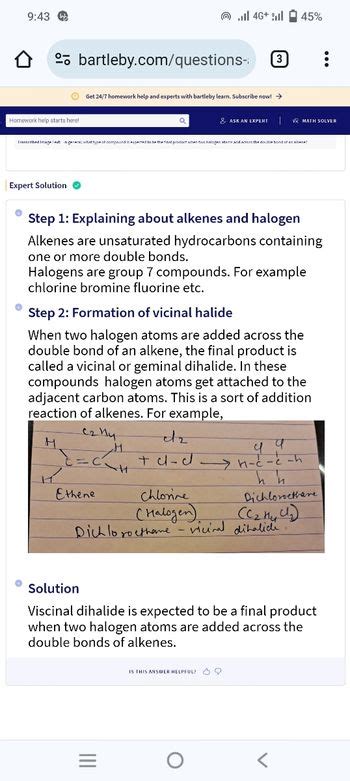 9:43
4G+
45%
bartleby.com/questions-
3
Get 24/7 homework help and experts with bartleby learn. Subscribe now! →
Homework help starts here!
ASK AN EXPERT
MATH SOLVER
Transcribed Image Text: In general, what type of compound is expected to be the final product when two halogen atoms are added across the double bond of an alkene?
Expert Solution
Step 1: Explaining about alkenes and halogen
Alkenes are unsaturated hydrocarbons containing
one or more double bonds.
Halogens are group 7 compounds. For example
chlorine bromine fluorine etc.
Step 2: Formation of vicinal halide
When two halogen atoms are added across the
double bond of an alkene, the final product is
called a vicinal or geminal dihalide. In these
compounds halogen atoms get attached to the
adjacent carbon atoms. This is a sort of addition
reaction of alkenes. For example,
C2H4 Cl2 Cl Cl
H H
C=C + Cl-Cl → H-C-C-H
H H H H
Ethene Chlorine Dichloroethane
(Halogen) (C2H4Cl2)
Dichloroethane - vicinal dihalide.
Solution
Viscinal dihalide is expected to be a final product
when two halogen atoms are added across the
double bonds of alkenes.
IS THIS ANSWER HELPFUL?